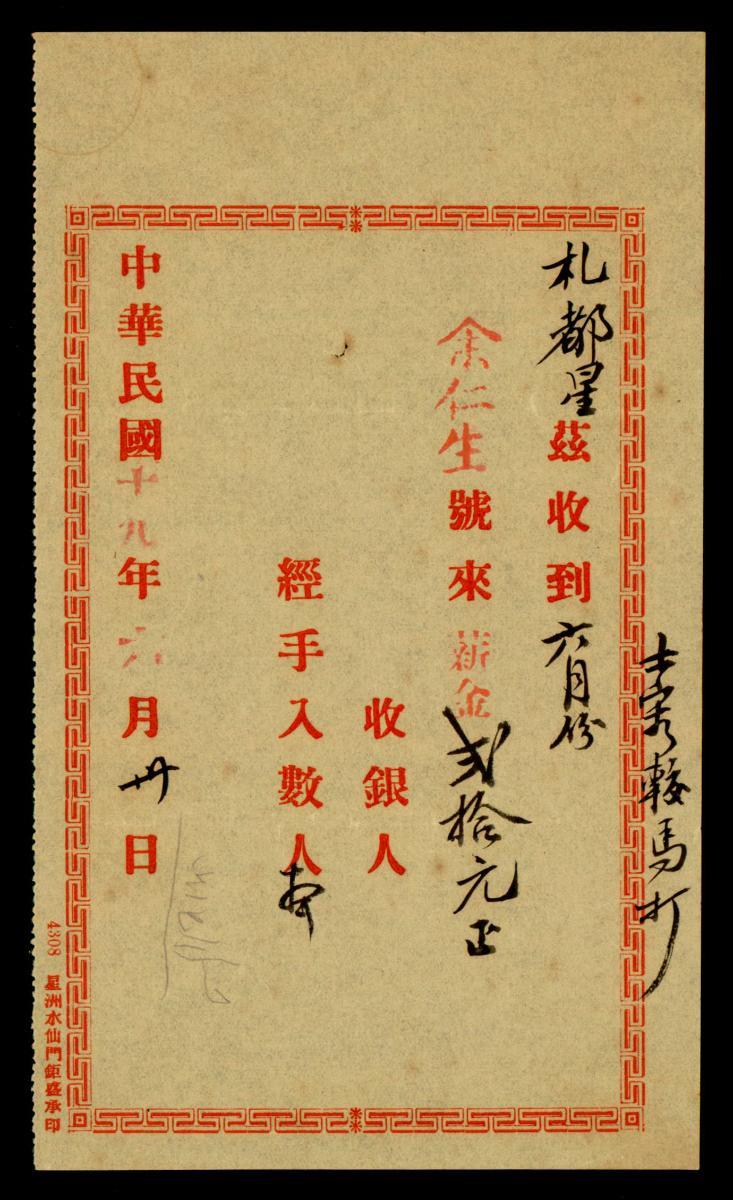 士 較馬打
札都星茲收到六月份
余仁生號來薪金弍拾元正
收銀人
經手入數人
中華民國十九年六月卅日
4308 星洲水仙門鉅盛承印